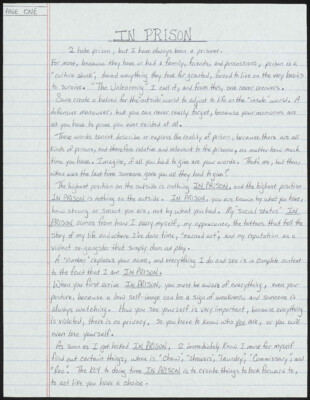 PAGE ONE
IN PRISON
I hate prison, but I have always been a prisoner.
For some, because they have or had a family, friends, and possessions, prison is a
"culture shock", denied everything they took for granted, forced to live on the very basics
to survive. "The Unlearning" I call it, and from they, one never recovers.
Some create a hatred for the outside world to adjust to life in the "inside" world. A
defensive maneuver, but you can never really forget, because your memories are
all you have to prove you ever existed at all.
These words cannot describe or express the reality of prison, because there are all
kinds of prisons, and therefore relative and relevant to the prisoner, no matter how much
time you have. Imagine, if all you had to give are your words. That's me, but then,
when was the last time someone gave you all they had to give?
The highest position on the outside is nothing IN PRISON, and the highest position
IN PRISON is nothing on the outside. IN PRISON, you are known by what you have,
how strong or smart you are, not by what you had. My "social status" IN
PRISON comes from how I carry myself, my appearance, the tattoos that tell the
story of my life and where I've done time, "sacred act", and my reputation as a
violent ex-gangster that simply does not play.
A "number" replaces your name, and everything I do and see is in complete contrast
to the fact that I am IN PRISON.
When you first arrive IN PRISON, you must be aware of everything, even your
posture, because a low self-image can be a sign of weakness, and someone is
always watching. How you see yourself is very important, because everything
is violated, there is no privacy. So you have to know who you are, or you will
even lose yourself.
As soon as I get locked IN PRISON, I immediately know I must for myself
find out certain things, when is "Chow", "Showers", "Laundry", "Commissary", and
"Rec". The KEY to doing time IN PRISON is to create things to look forward to,
to act like you have a choice.